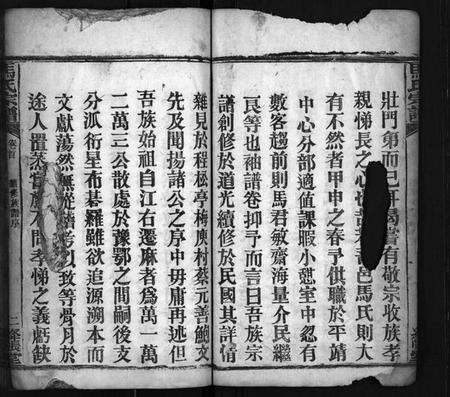 壯門第而已
有敬宗收族孝
親悌長之心
邑馬氏則大
有不然者甲申之春予供職於平靖
中心分部適值課暇小憩室中忽有
數客趨前則馬君敏齋海量介民繼
良等也袖譜卷抑予而言曰吾族宗
譜創修於道光續修於民國其詳情
雜見於程松亭梅庾村蔡元善鮑文
先及聞揚諸公之序中毋庸再述但
吾族始祖自江右遷麻者為萬一萬
二萬三公散處於豫鄂之間嗣後支
分派衍星布碁羅雖欲追源溯本而
文獻蕩然無從稽考以致等骨月於
途人置蒸嘗於不問孝悌之義虧缺
馬氏宗譜
卷首